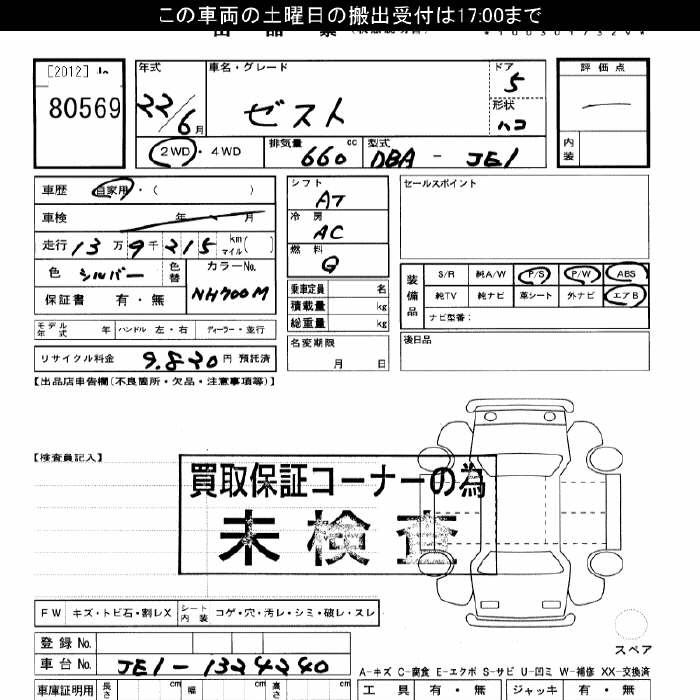 この車両の土曜日の搬出受付は17:00まで
[2012]
80569
年式
22/6月
車名・グレード
ゼスト
ドア
5
形状
ハコ
評価点
内装
2WD・4WD
排気量 660 cc
型式 DBA - JE1
車歴 自家用・( )
車検 年 月
走行 13万9千215 km マイル( )
色 シルバー
色替
カラーNo.
NH700M
保証書 有・無
モデル年式 年 ハンドル 左・右 ディーラー・並行
リサイクル料金 9.820 円 預託済
シフト
AT
冷房
AC
燃料
G
乗車定員 名
積載量 kg
総重量 kg
名変期限
月 日
セールスポイント
装備品
S/R 純A/W P/S P/W ABS
純TV 純ナビ 革シート 外ナビ エアB
ナビ型番:
後日品
【出品店申告欄(不良箇所・欠品・注意事項等)】
【検査員記入】
買取保証コーナーの為
未検査
FW キズ・トビ石・割レX シート内装 コゲ・穴・汚レ・シミ・破レ・スレ
スペア
登録No.
車台No. JE1-1324240
A-キズ C-腐食 E-エクボ S-サビ U-凹ミ W-補修 XX-交換済
車庫証明用 長さ cm 幅 cm 高さ cm
工具 有・無 ジャッキ 有・無